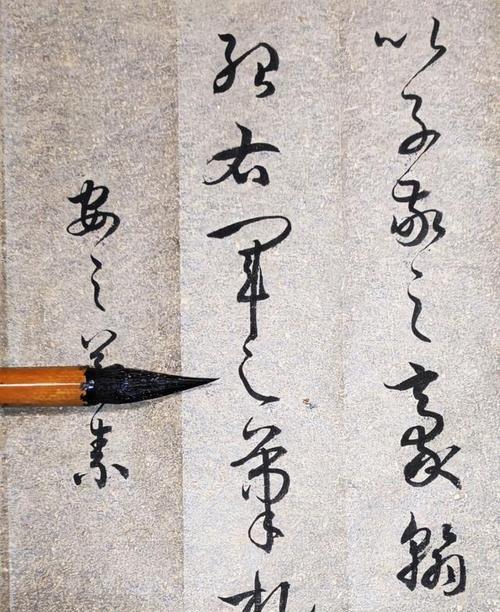 以子敬之豪翰
紹右軍之筆札
安之素